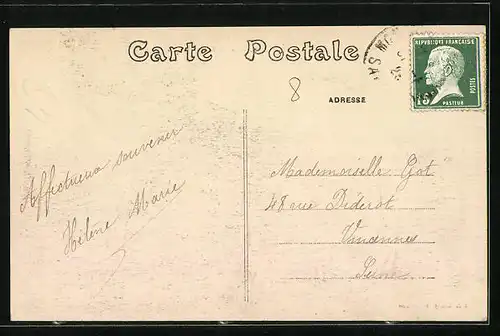 Carte Postale
8
ADRESSE
RÉPUBLIQUE FRANÇAISE
POSTES
15
PASTEUR
Affectueux souvenir
Hélène Marie
Mademoiselle Got
48 rue Diderot
Vincennes
Seine